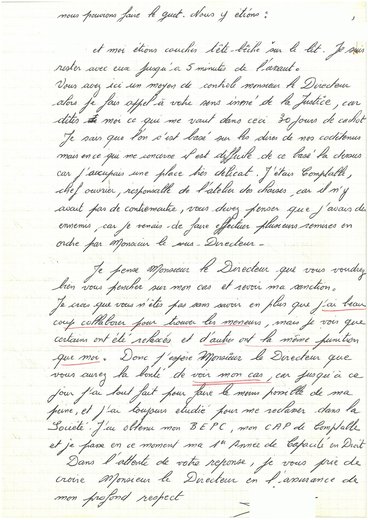 nous pouvons faire le guet. Nous y étions :
et moi étions couchés tête-bêche sur le lit. Je suis
rester avec eux jusqu'à 5 minutes de l'assaut.
Vous avez ici un moyen de contrôle monsieur le Directeur
alors je fais appel à votre sens inné de la Justice, car
dites moi ce que me vaut dans ceci 30 jours de cachot
Je sais que l'on s'est basé sur les dires de nos codétenus
mais en ce que me concerne il est difficile de ce basé là dessus
car j'occupais une place très délicat. J'étais Comptable,
chef ouvrier, responsable de l'atelier des chaises, car il n'y
avait pas de contremaître, vous devez penser que j'avais des
ennemis, car je venais de faire effectuer plusieurs remises en
ordre par Monsieur le sous-Directeur.
Je pense Monsieur le Directeur que vous voudrez
bien vous pencher sur mon cas et revoir ma sanction.
Je crois que vous n'êtes pas sans savoir en plus que j'ai beau
coup collaborer pour trouver les meneurs, mais je vois que
certains ont été relaxés et d'autres ont la même punition
que moi. Donc j'espère Monsieur le Directeur que
vous aurez la bonté de voir mon cas, car jusqu'à ce
jour j'ai tout fait pour faire le moins possible de ma
peine, et j'ai toujours étudié pour me reclasser dans la
Société. J'ai obtenu mon B.E.P.C, mon C.A.P de Comptable
et je passe en ce moment ma 1ère Année de Capacité en Droit
Dans l'attente de votre réponse, je vous prie de
croire Monsieur le Directeur en l'assurance de
mon profond respect